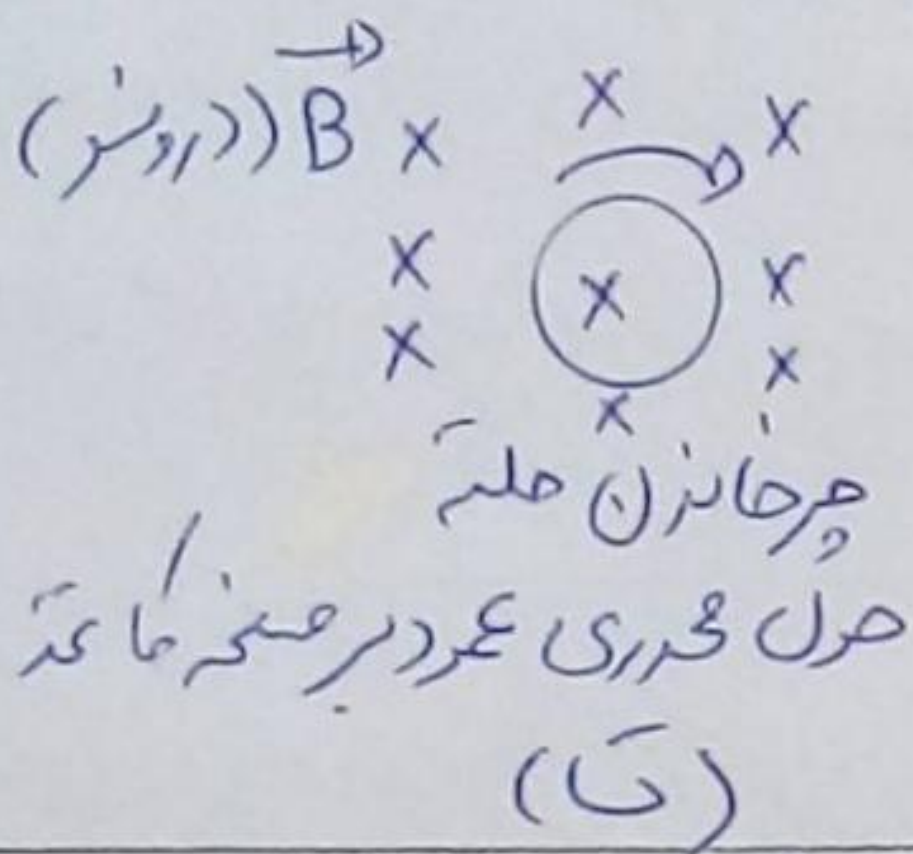 B (درونسو) × × ×
× × ×
× ×
×
چرخاندن حلقه
حول محوری عمود بر صفحه کاغذ
(ت)